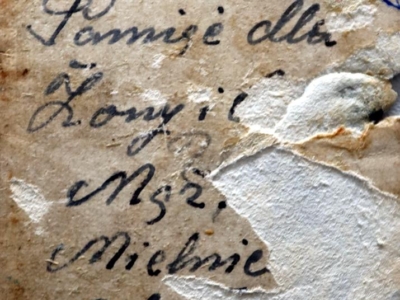 Pamięć dla
Żony i
Mąż,
Mielnic